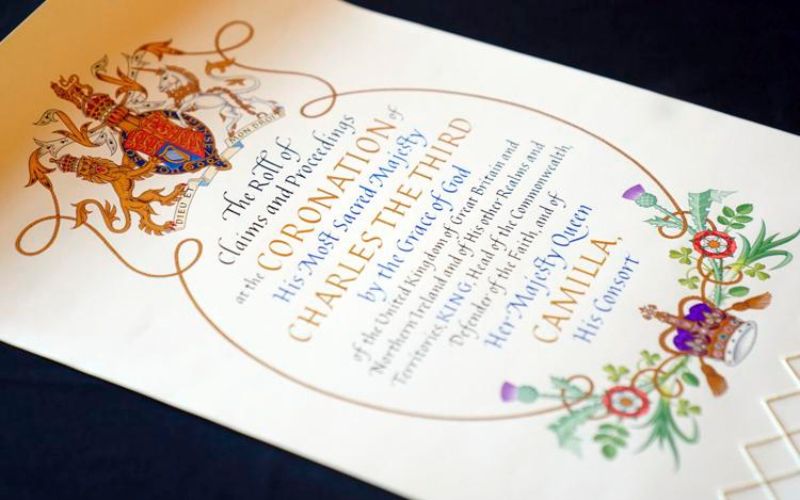 The Roll of
Claims and Proceedings
at the CORONATION of
His Most Sacred Majesty
CHARLES THE THIRD
by the Grace of God
of the United Kingdom of Great Britain and
Northern Ireland and of His other Realms and
Territories, KING, Head of the Commonwealth,
Defender of the Faith, and of
Her Majesty Queen
CAMILLA,
His Consort
DIEU ET
MON DROIT